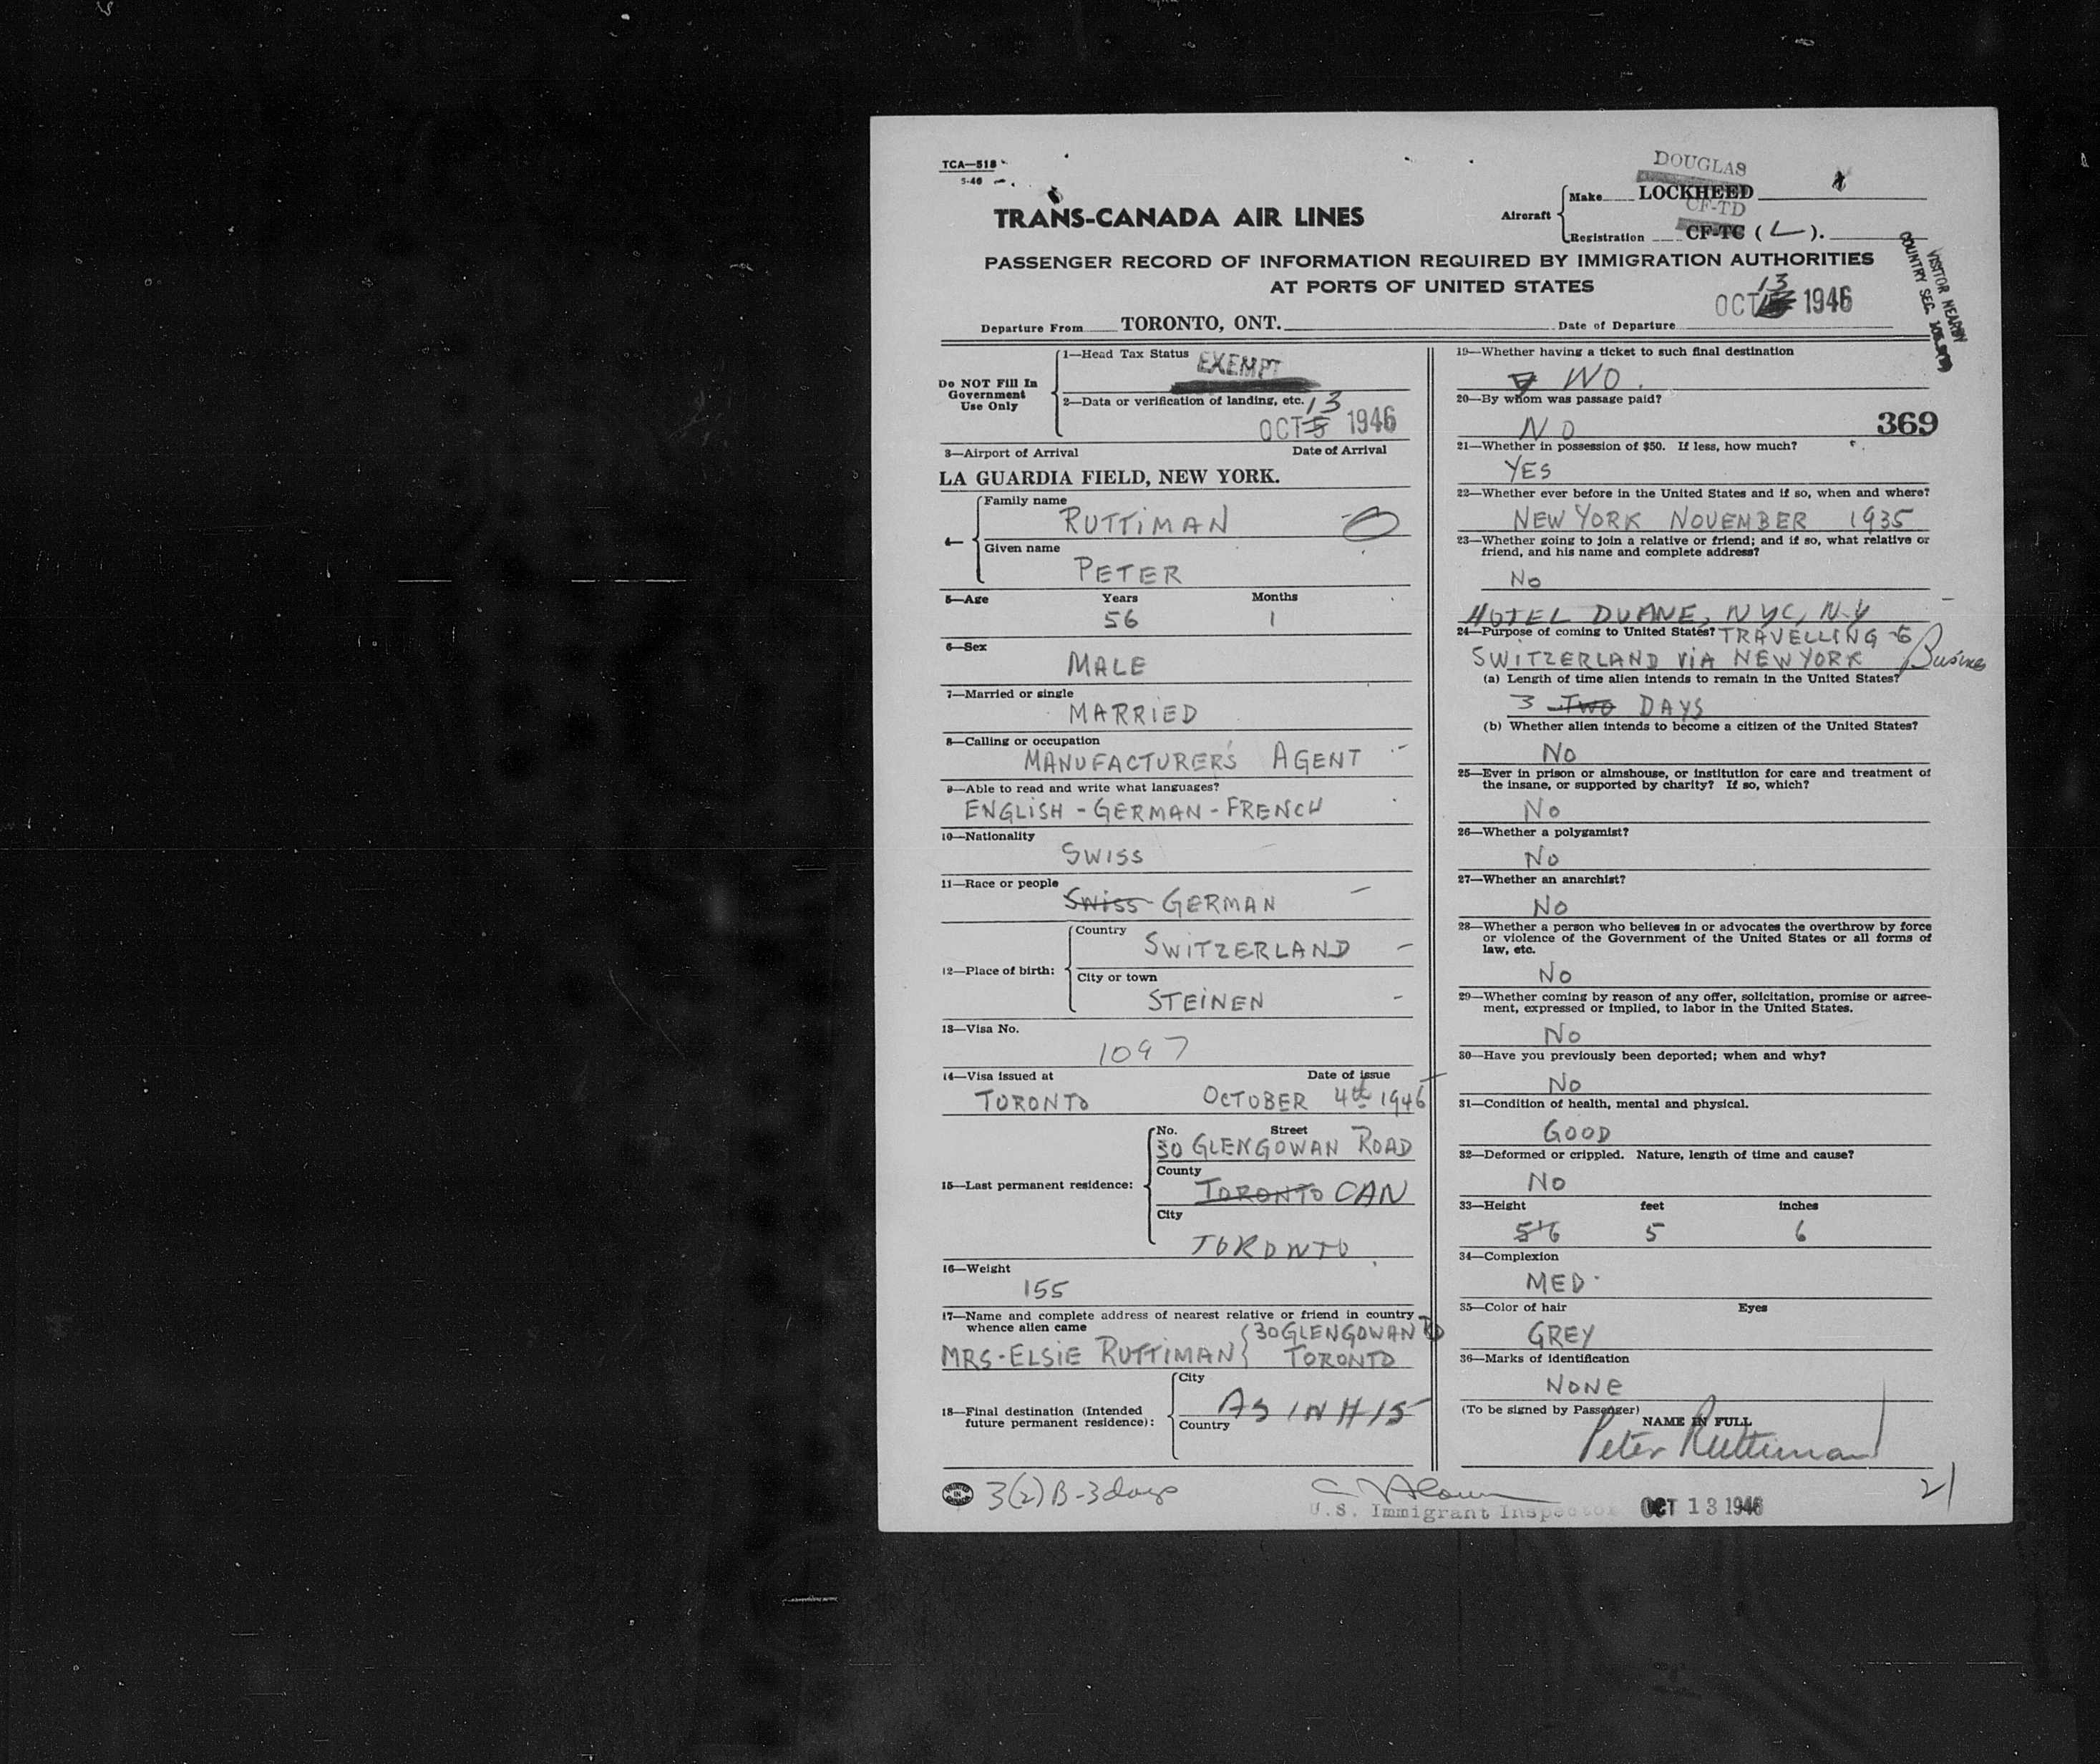 TCA—518
5-46
TRANS-CANADA AIR LINES
Aircraft
DOUGLAS
Make LOCKHEED
CF-TD
Registration CF-TC ( L ).
PASSENGER RECORD OF INFORMATION REQUIRED BY IMMIGRATION AUTHORITIES
AT PORTS OF UNITED STATES
VISITOR
COUNTRY SEC.
13
OCT 1946
Departure From TORONTO, ONT. Date of Departure
Do NOT Fill In
Government
Use Only
1—Head Tax Status EXEMPT
2—Data or verification of landing, etc. 13
OCT 5 1946
3—Airport of Arrival Date of Arrival
LA GUARDIA FIELD, NEW YORK.
4—
Family name
RUTTIMAN
Given name
PETER
5—Age Years Months
56 1
6—Sex
MALE
7—Married or single
MARRIED
8—Calling or occupation
MANUFACTURER'S AGENT
9—Able to read and write what languages?
ENGLISH - GERMAN - FRENCH
10—Nationality
SWISS
11—Race or people
SWISS GERMAN
12—Place of birth:
Country
SWITZERLAND
City or town
STEINEN
13—Visa No.
1097
14—Visa issued at Date of issue
TORONTO OCTOBER 4th 1946
15—Last permanent residence:
No. Street
30 GLENGOWAN ROAD
County
TORONTO CAN
City
TORONTO
16—Weight
155
17—Name and complete address of nearest relative or friend in country
whence alien came
30 GLENGOWAN RD
MRS. ELSIE RUTTIMAN TORONTO
18—Final destination (Intended
future permanent residence):
City
AS IN # 15
Country
19—Whether having a ticket to such final destination
NO.
20—By whom was passage paid?
NO
369
21—Whether in possession of $50. If less, how much?
YES
22—Whether ever before in the United States and if so, when and where?
NEW YORK NOVEMBER 1935
23—Whether going to join a relative or friend; and if so, what relative or
friend, and his name and complete address?
NO
HOTEL DUANE, NYC, N.Y
24—Purpose of coming to United States? TRAVELLING TO
SWITZERLAND VIA NEW YORK Business
(a) Length of time alien intends to remain in the United States?
3 TWO DAYS
(b) Whether alien intends to become a citizen of the United States?
NO
25—Ever in prison or almshouse, or institution for care and treatment of
the insane, or supported by charity? If so, which?
NO
26—Whether a polygamist?
NO
27—Whether an anarchist?
NO
28—Whether a person who believes in or advocates the overthrow by force
or violence of the Government of the United States or all forms of
law, etc.
NO
29—Whether coming by reason of any offer, solicitation, promise or agree-
ment, expressed or implied, to labor in the United States.
NO
30—Have you previously been deported; when and why?
NO
31—Condition of health, mental and physical.
GOOD
32—Deformed or crippled. Nature, length of time and cause?
NO
33—Height feet inches
5 6
34—Complexion
MED.
35—Color of hair Eyes
GREY
36—Marks of identification
NONE
(To be signed by Passenger)
NAME IN FULL
Peter Ruttiman
PRINTED IN CANADA
3(2) B - 3 days
U.S. Immigrant Inspector OCT 13 1946
21